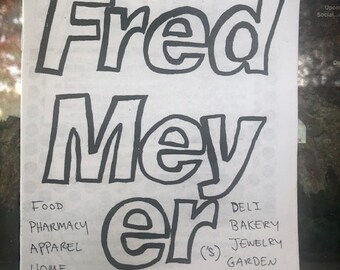 Fred
Mey
er
('s)
FOOD
PHARMACY
APPAREL
HOME
DELI
BAKERY
JEWELRY
GARDEN